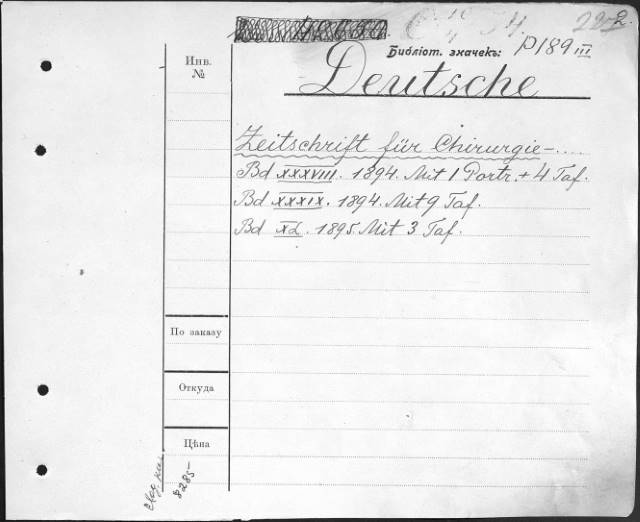 222.
Библіот. значекъ: P189 III
Инв.
№
Deutsche
Zeitschrift für Chirurgie – ....
Bd XXXVIII. 1894. Mit 1 Portr. + 4 Taf.
Bd XXXIX. 1894. Mit 9 Taf.
Bd XL. 1895. Mit 3 Taf.
По заказу
Откуда
Цѣна
8285-